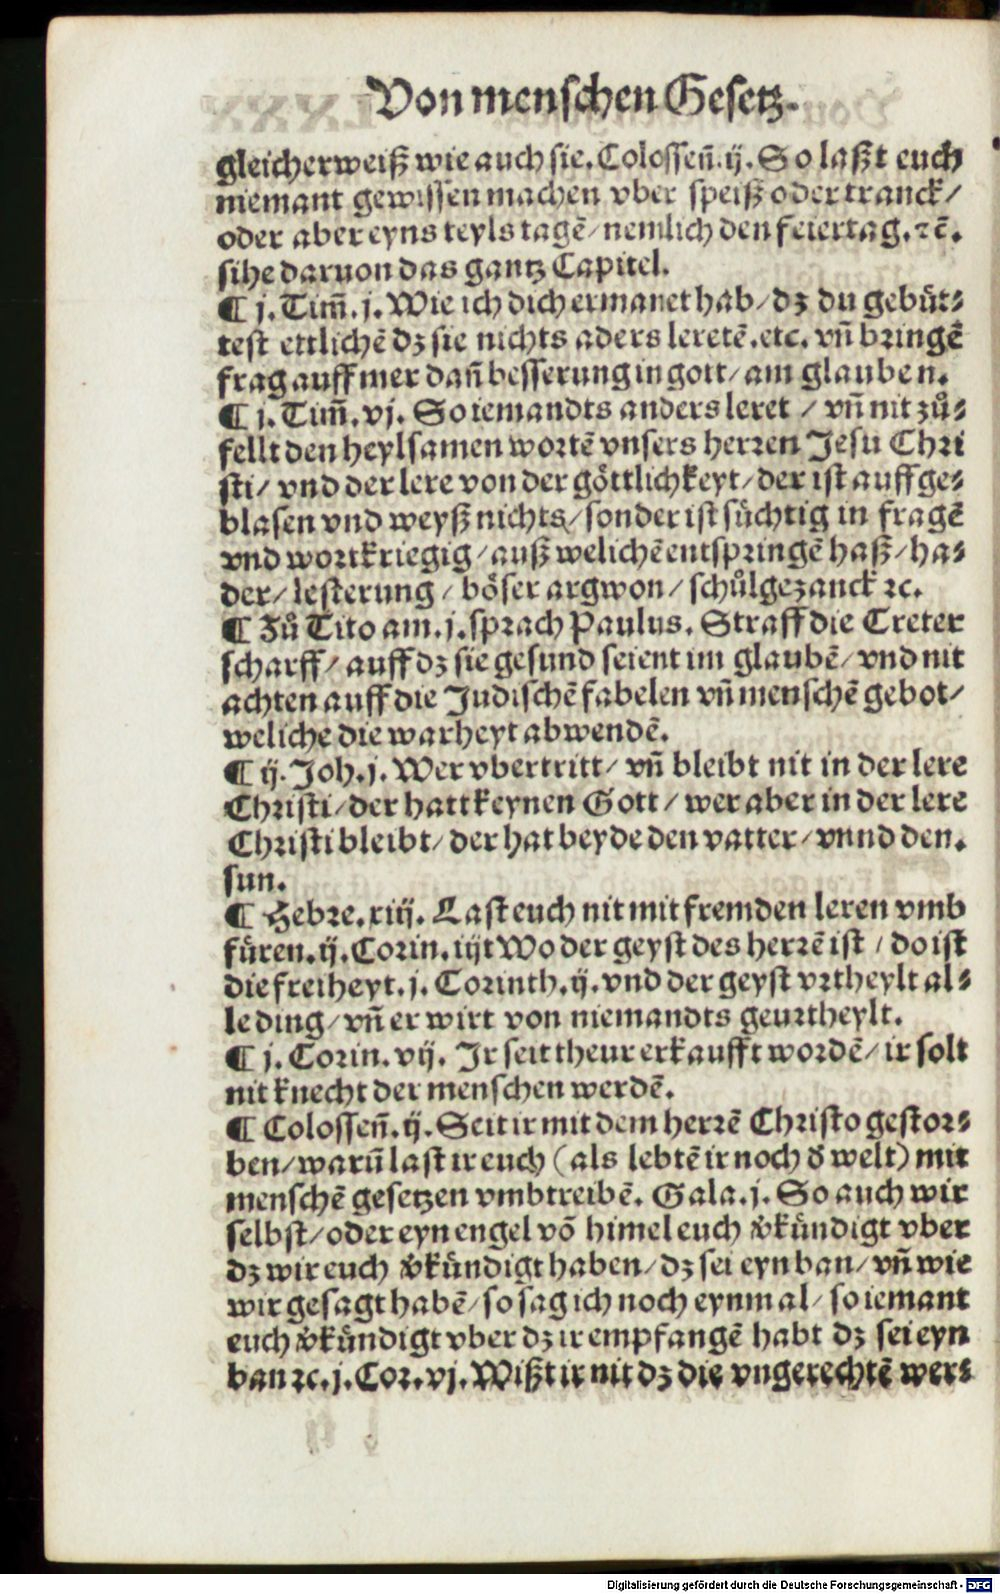 Von menschen Gesetz.
gleicherweiß wie auch sie. Colosseñ. ij. So laßt euch
niemant gewissen machen vber speiß oder tranck/
oder aber eyns teyls tagē/ nemlich den feiertag. ⁊ē.
sihe daruon das gantz Capitel.
¶ j. Tim̃. j. Wie ich dich ermanet hab/ dz du gebüt⸗
test ettlichē dz sie nichts aders leretē. etc. vñ bringē
frag auff mer dañ besserung in gott/ am glauben.
¶ j. Tim̃. vj. So iemandts anders leret / vñ nit zů⸗
fellt den heylsamen wortē vnsers herren Jesu Chri
sti/ vnd der lere von der göttlichkeyt/ der ist auffge⸗
blasen vnd weyß nichts/ sonder ist süchtig in fragē
vnd wortkriegig/ auß welichē entspringē haß/ ha⸗
der/ lesterung / böser argwon/ schůlgezanck ⁊c.
¶ Zů Tito am. j. sprach Paulus. Straff die Creter
scharff/ auff dz sie gesund seient im glaubē/ vnd nit
achten auff die Judischē fabelen vñ menschē gebot/
weliche die warheyt abwendē.
¶ ij. Joh. j. Wer vbertritt/ vñ bleibt nit in der lere
Christi/ der hatt keynen Gott/ wer aber in der lere
Christi bleibt/ der hat beyde den vatter/ vnnd den.
sun.
¶ Hebre. xiij. Last euch nit mit fremden leren vmb
füren. ij. Corin. iijt Wo der geyst des herrē ist / do ist
die freiheyt. j. Corinth. ij. vnd der geyst vrtheylt al⸗
le ding/ vñ er wirt von niemandts geurtheylt.
¶ j. Corin. vij. Jr seit theur erkaufft wordē/ ir solt
nit knecht der menschen werdē.
¶ Colosseñ. ij. Seit ir mit dem herrē Christo gestor⸗
ben/ warū last ir euch (als lebtē ir noch d̓ welt) mit
menschē gesetzen vmbtreibē. Gala. j. So auch wir
selbst/ oder eyn engel vō himel euch v̓kündigt vber
dz wir euch v̓kündigt haben/ dz sei eyn ban/ vñ wie
wir gesagt habē/ so sag ich noch eynmal/ so iemant
euch v̓kündigt vber dz ir empfangē habt dz sei eyn
ban ⁊c. j. Cor. vj. Wißt ir nit dz die vngerechtē wer⸗
Digitalisierung gefördert durch die Deutsche Forschungsgemeinschaft - DFG